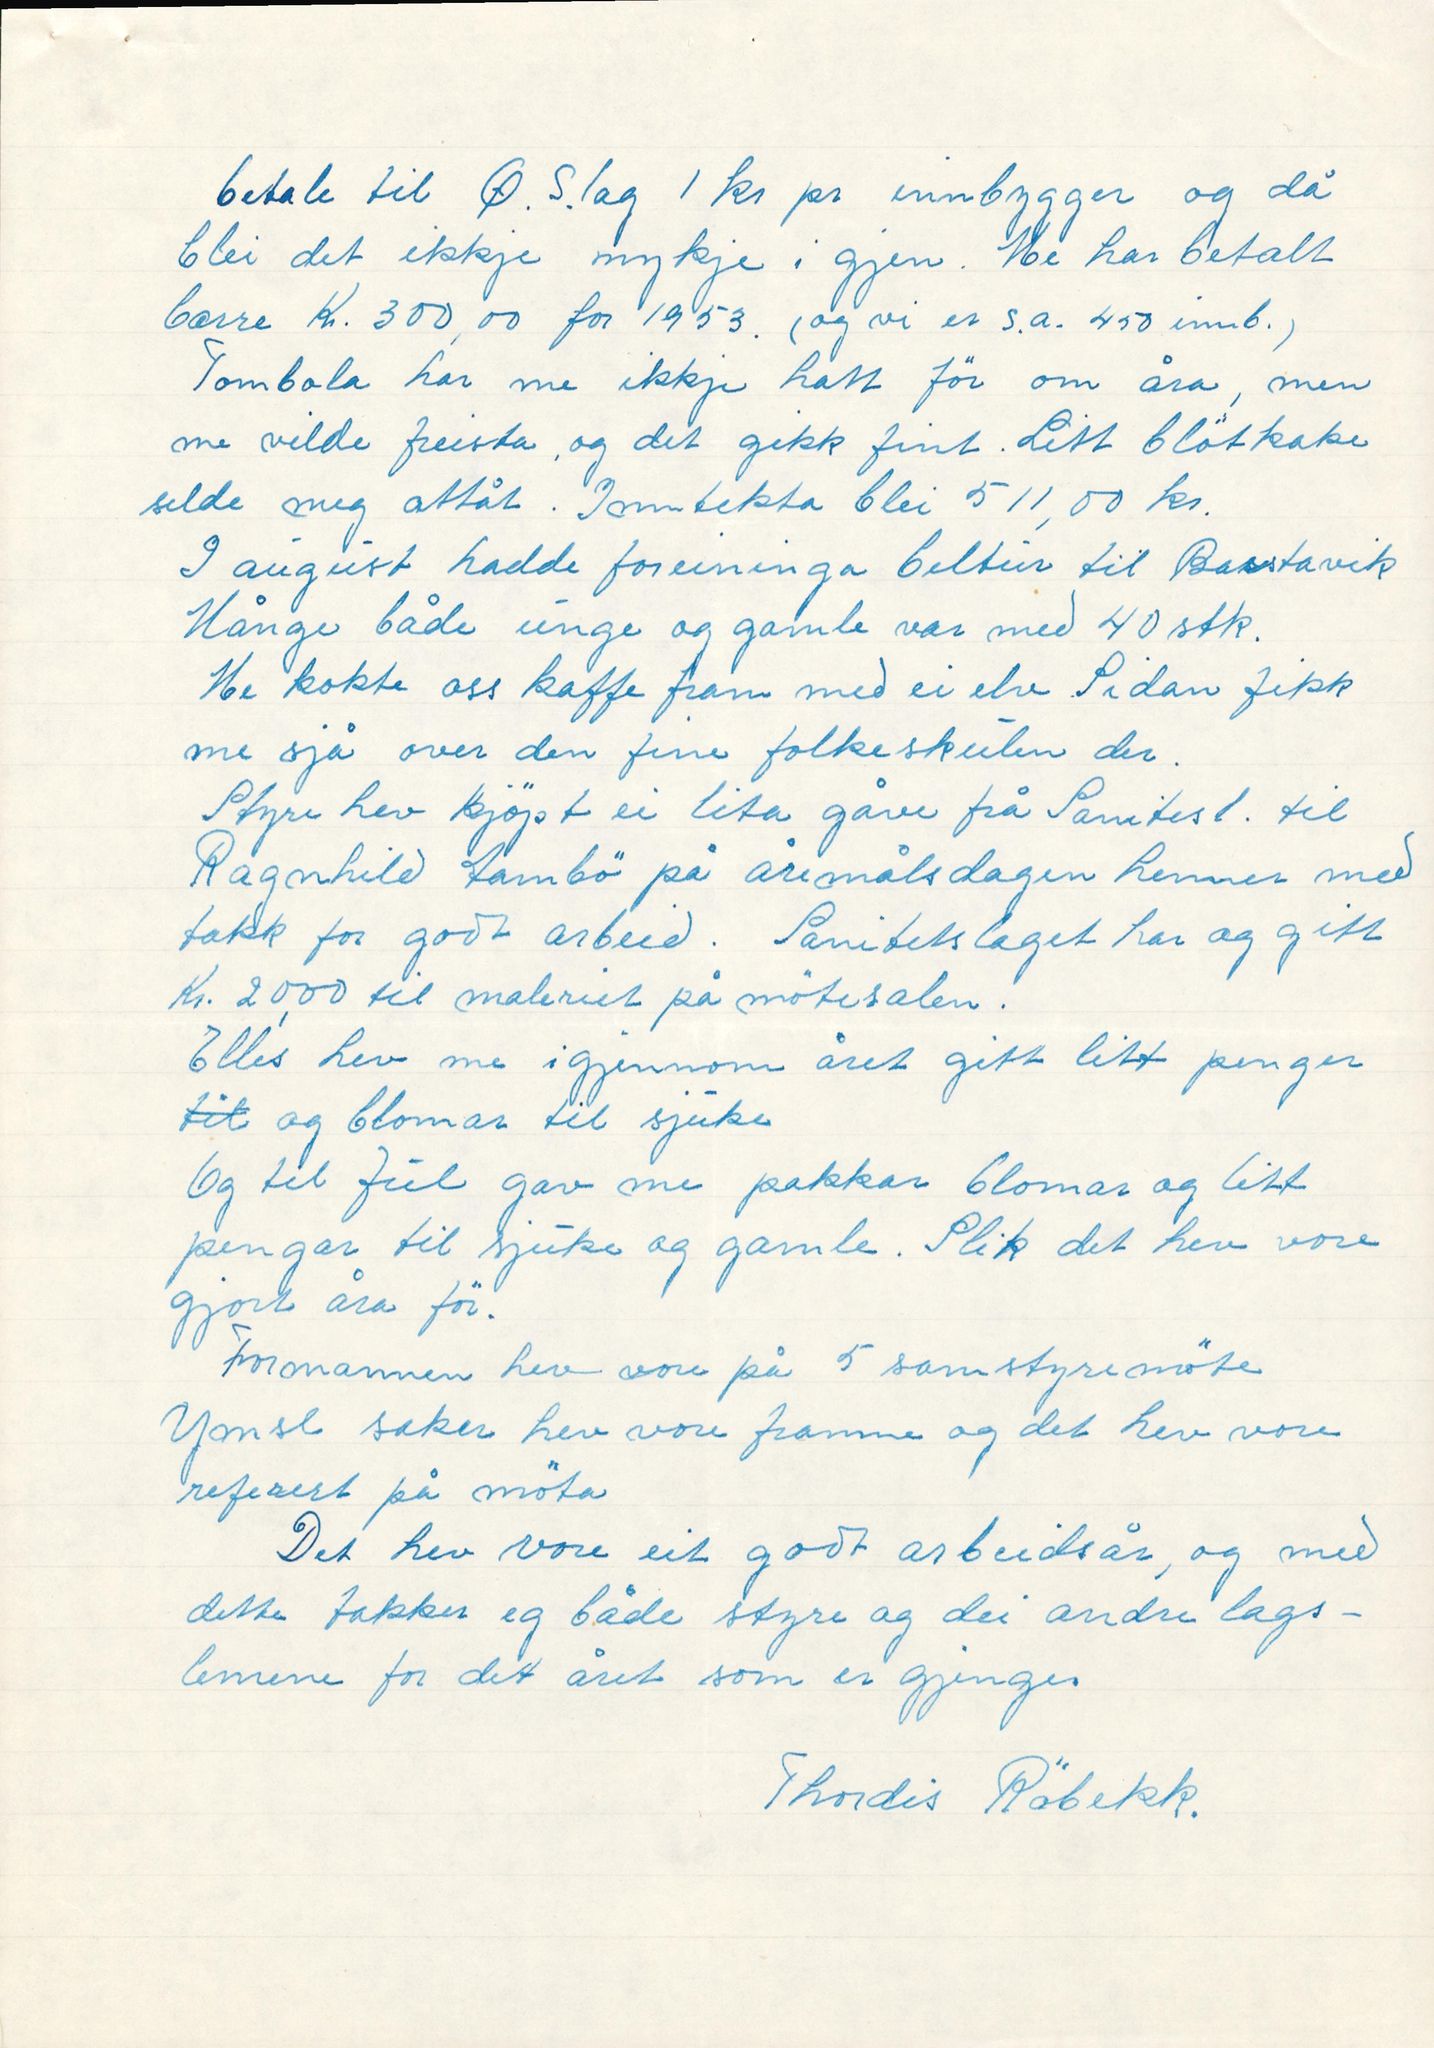 betale til Ø. S.lag 1 kr pr innbygger og då
blei det ikkje mykje i gjen. Me har betalt
berre Kr. 300,00 for 1953. (og vi er s.a. 450 innb.)
Tombola har me ikkje hatt för om åra, men
me vilde freista, og det gikk fint. Litt blötkake
selde meg attåt. Inntekta blei 511,00 kr.
I august hadde foreininga biltur til Barstavik
Månge både unge og gamle var med 40 stk.
Me kokte oss kaffe fram med ei elv Sidan fikk
me sjå over den fine folkeskulen der.
Styre hev kjöpt ei lita gåve frå Sanitesl. til
Ragnhild Lambö på åremålsdagen hennar med
takk for godt arbeid. Sanitetslaget har og gitt
Kr. 2,000 til maleriet på mötesalen.
Elles hev me igjennom året gitt litt penger
til og blomar til sjuke
Og til Jul gav me pakkar blomar og litt
pengar til sjuke og gamle. Slik det hev vore
gjort åra för.
Formannen hev vore på 5 samstyremöte
Ymse saker hev vore framme og det hev vore
referert på möta
Det hev vore eit godt arbeidsår, og med
dette takker eg både styre og dei andre lags-
lemene for det året som er gjenge.
Thordis Röbekk.